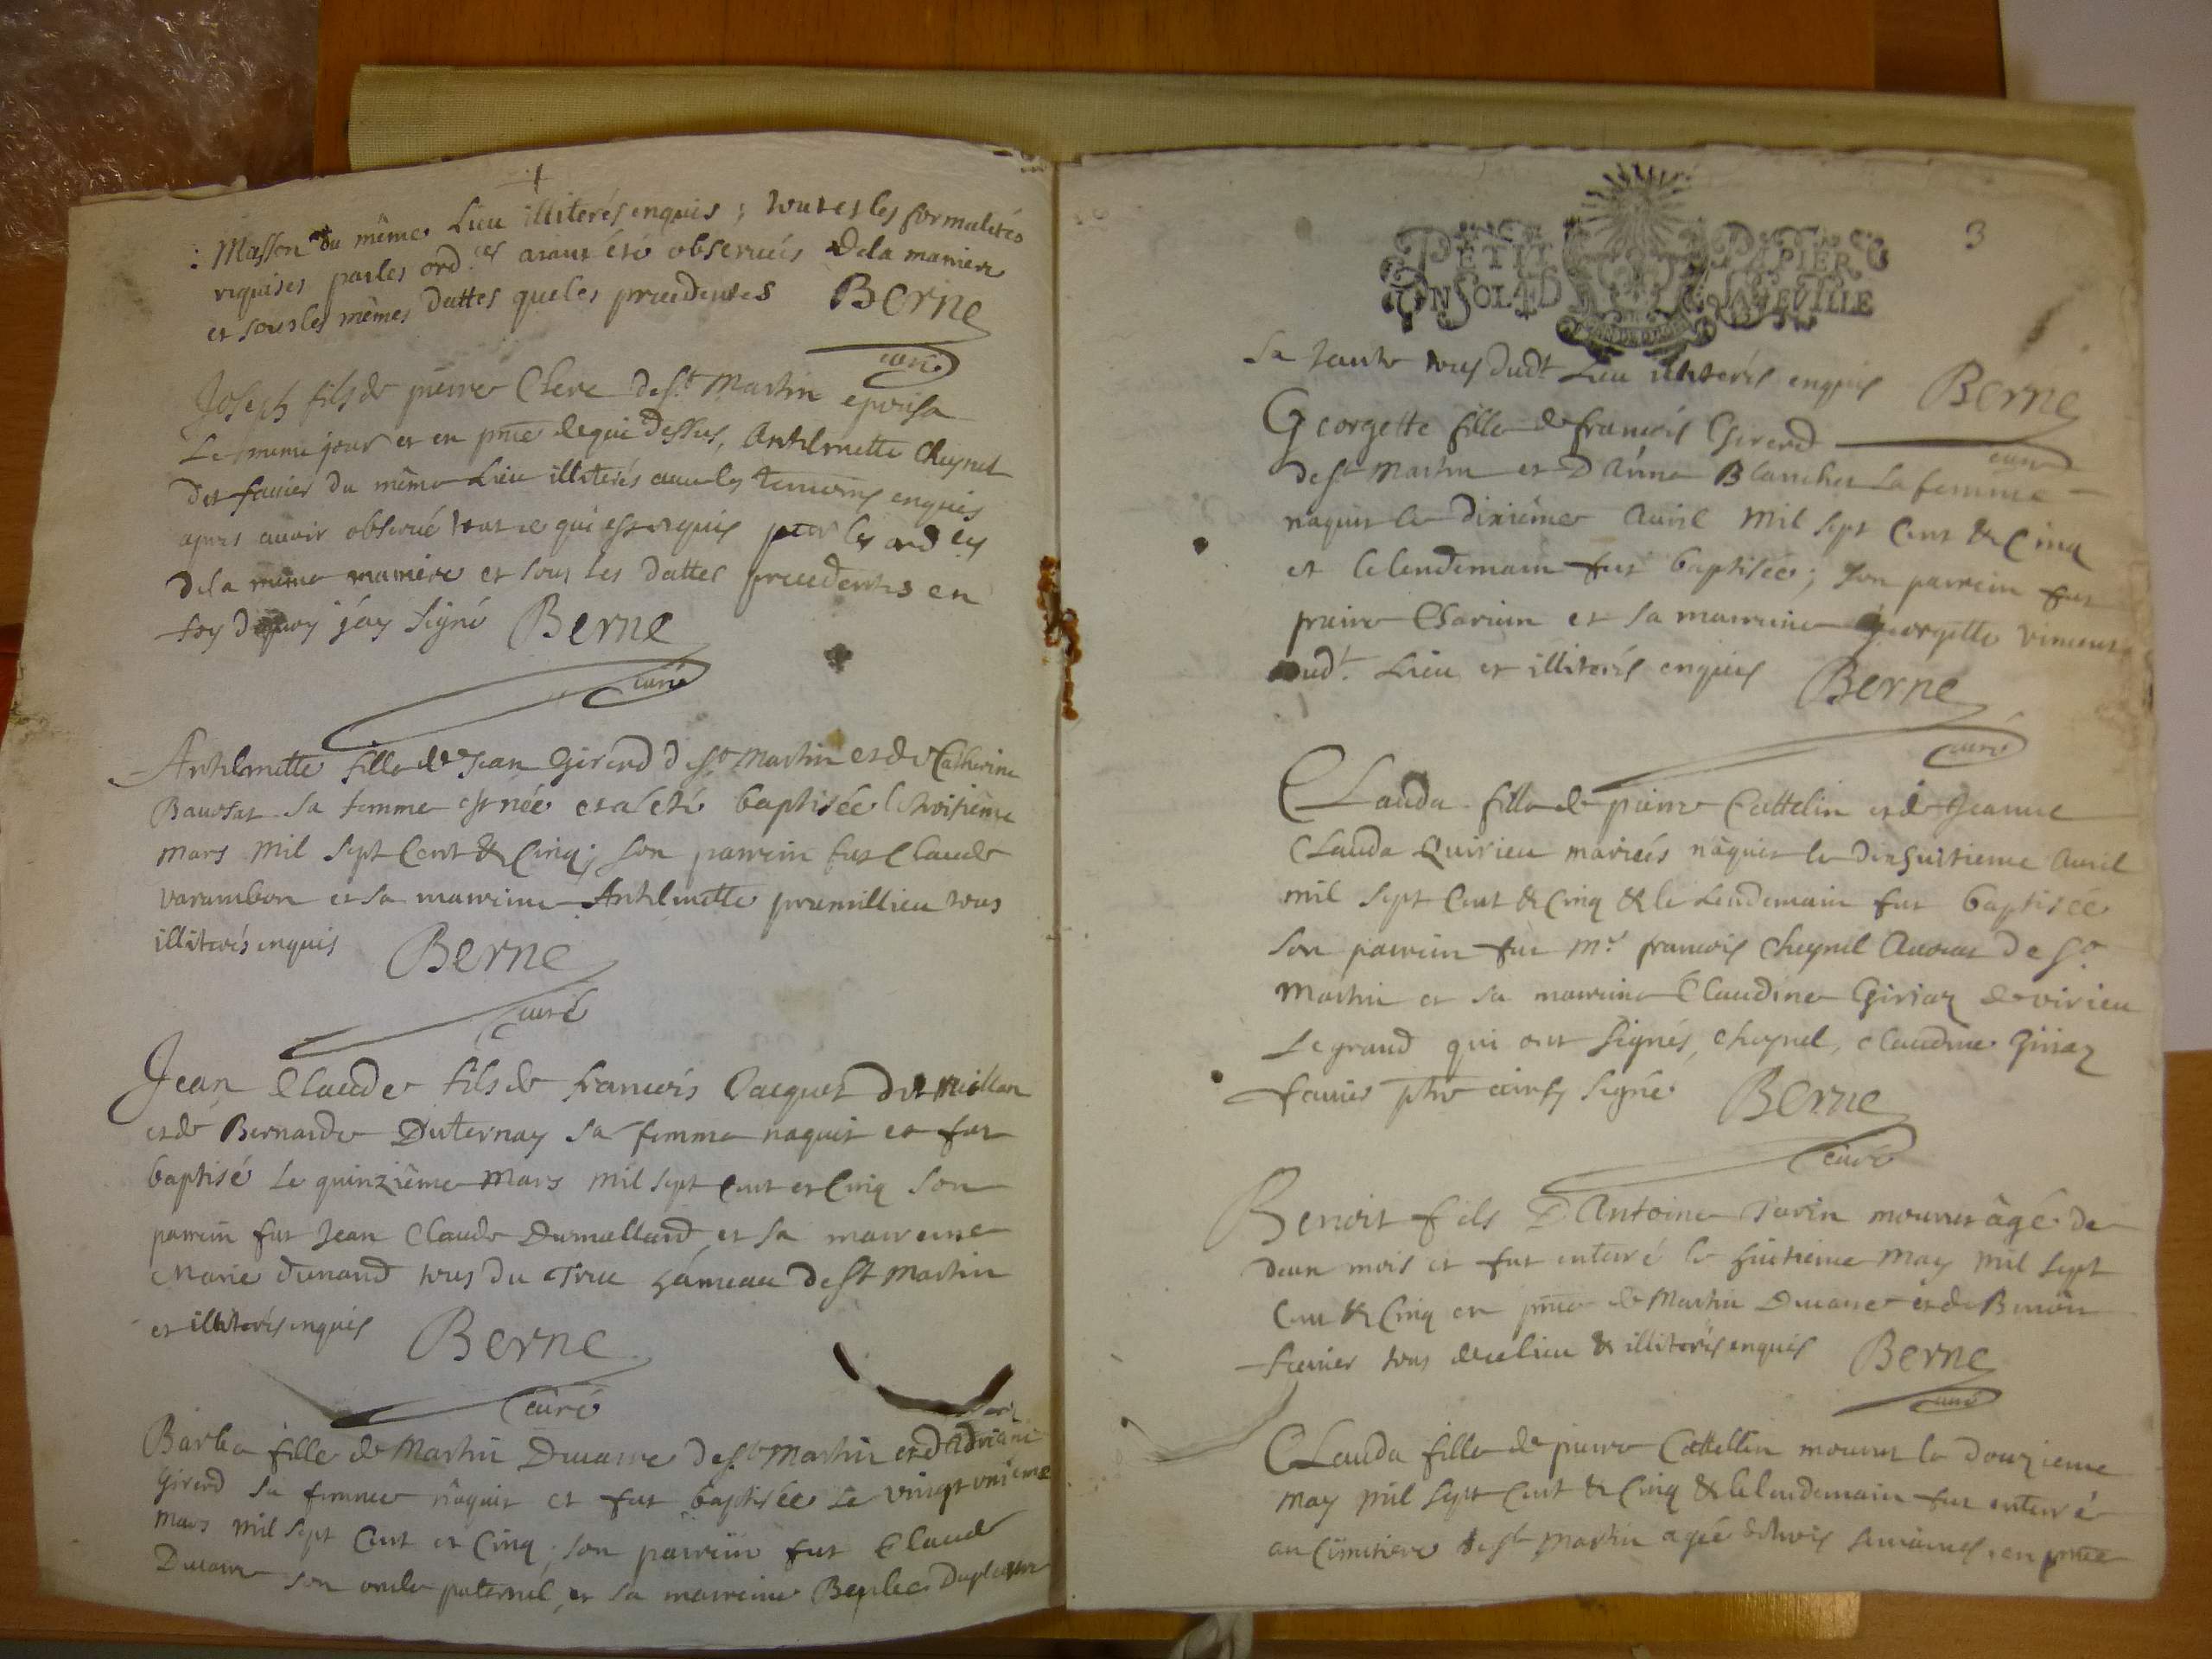 Masson du même Lieu illiterés enquis ; toutes les formalités
requises par les ord.es aiant été observées de la maniere
et sous les mêmes dattes que les precedentes Berne
curé
Joseph fils de pierre Chere de st Martin epousa
Le meme jour et en pnce de qui dessus, Anthelmette Cheynel
dit favier du même Lieu illiterés avec les temoins enquis
apres avoir observé tout ce qui est requis par les ord.es
de la même maniere et sous les dattes precedentes en
foy de quoy j'ay signé Berne
curé
Anthelmette fille de Jean Girerd de st Martin et de Catherine
sa femme est née et a eté baptisée le huitieme
mars mil sept Cent & Cinq; son parrein fut Claude
varambon et sa marreine Anthelmette premillieu tous
illiterés enquis Berne
curé
Jean Claude fils de francois Jacquet dit
et de Bernarde Duternay sa femme naquit et fut
baptisé Le quinzième Mars mil sept cent et Cinq son
parrein fut Jean Claude Dumallard et sa marreine
Marie dunand tous du Truc hámeau de st Martin
et illiterés enquis Berne
curé
Barbe fille de Martin Ducarre de st Martin et d'Adriane
Girerd sa femme nâquit et fut baptisée Le vingt unieme
mars mil sept Cent et Cinq; son parrein fut Claude
Ducarre son oncle paternel, et sa marreine
3
PETIT PAPIER
UN SOL 4 D LA FEUILLE
sa tante tous dudt Lieu illiterés enquis Berne
curé
Georgette fille de francois Girerd
de st Martin et D'Anne Blanchet sa femme
naquit le dixième Avril Mil sept Cent & Cinq
et le lendemain fut baptisée; son parrein fut
pierre et sa marreine georgette vincent
dudt. Lieu et illiterés enquis Berne
curé
CLauda fille de pierre Cattelin et de Jeanne
CLauda Quirieu mariés nâquit le dixhuitieme Avril
mil sept Cent & Cinq & le Lendemain fut baptisée
son parrein fut Mr. francois Cheynel Avocat de st
Martin et sa marreine Claudine Giriaz de virieu
Le grand qui ont signés, cheynel, claudine Giriaz
favier ptre ainsy signé Berne
curé
Benoit fils D'Antoine mourut âgé de
deux mois et fut enterré le huitieme May mil sept
Cent & Cinq en pnce de Martin Ducarre et de Benoit
favier tous de ce lieu & illiterés enquis Berne
curé
CLauda fille de pierre Cattellin mourut le douzieme
May mil sept Cent & Cinq & le lendemain fut enterré
au Cimitiere de st Martin agée de trois semaines, en pnce